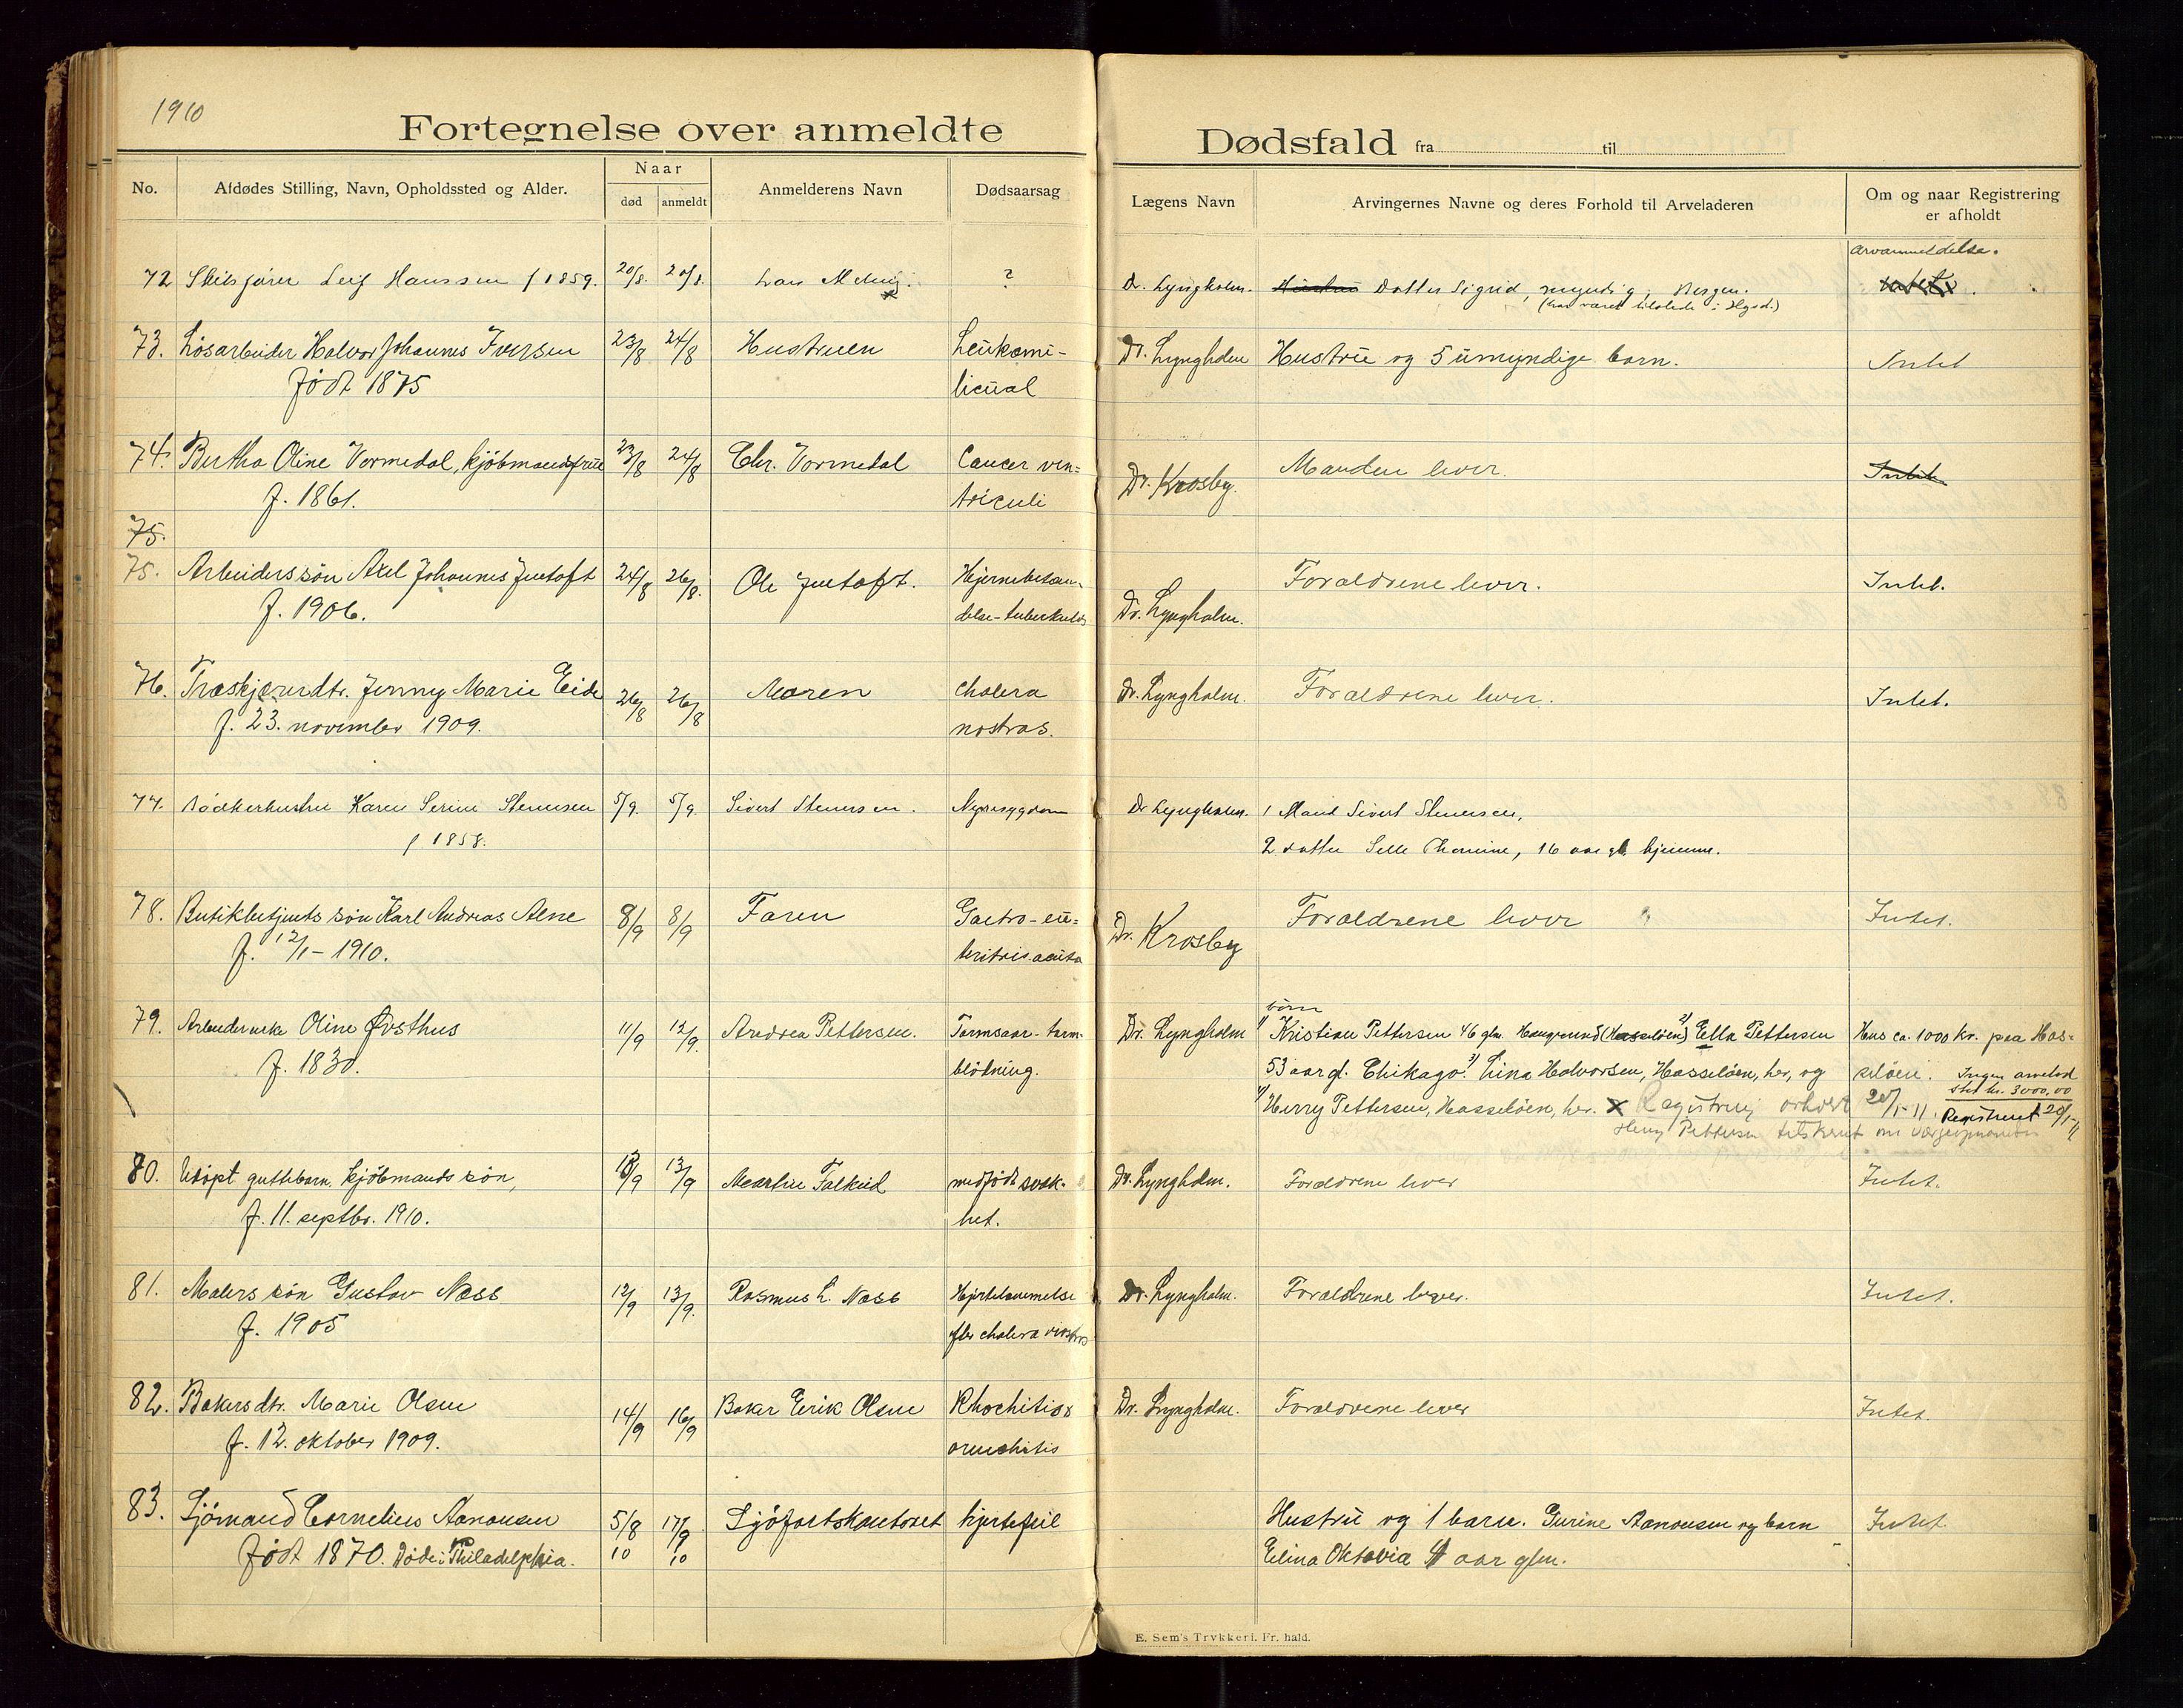 1910
Fortegnelse over anmeldte Dødsfald fra til
No. Afdødes Stilling, Navn, Opholdssted og Alder. Naar død anmeldt Anmelderens Navn Dødsaarsag Lægens Navn Arvingernes Navne og deres Forhold til Arveladeren Om og naar Registrering er afholdt
72 Skibsfører Leif Hanssen f 1859. 20/8. 20/8. ? Dr. Lyngholm. Hustru Datter Sigrid, myndig, Bergen. arveanmeldelse.
(har været tilstede i Hgsd.) Intet.
73. Løsarbeider Halvor Johannes Iversen 23/8 24/8 Hustruen Leukomi- Dr. Lyngholm Hustru og 5 umyndige barn. Intet
født 1875 licual
74. Bertha Oline Vormedal, kjøbmandsfrue 23/8 24/8 Chr. Vormedal Cancer ven= Dr. Krosby. Manden lever. Intet
f. 1861. triculi
75.
75. Arbeiderssøn Axel Johannes Juetoft 24/8 26/8. Ole Juetoft. Hjernebetæn- Dr. Lyngholm. Forældrene lever. Intet.
f. 1906. delse-tuberkuløs
76. Træskjærerdtr. Jenny Marie Eide 26/8 26/8 Moren cholera Dr. Lyngholm. Forældrene lever. Intet.
f. 23. november 1909. nostras.
77. Bødkerhustru Karen Serine Stenersen 5/9. 5/9. Sivert Stenersen. Nyresygdom Dr Lyngholm. 1 Mand Sivert Stenersen,
f 1858. 2 datter Selle Thomine, 16 aar gl. hjemme.
78. Butikbetjents søn Karl Andreas Alne 8/9 8/9 Faren Gastro-en= Dr. Krosby Forældrene lever Intet.
f. 12/1-1910. teritris acuta
børn
79. Arbeiderenke Oline Østhus 11/9 12/9. Andrea Pettersen. Tarmsaar-tarm- Dr. Lyngholm 1) Kristian Pettersen 46 glm. Haugesund (Hasseløen) 2) Ella Pettersen Hus ca. 1000 kr. paa Has-
f. 1830. blødning. 53 aar gl. Chikago. 3) Lina Halvorsen, Hasseløen, her, og seløen. Ingen arvelod
4) Herry Pettersen, Hasseløen, her. x Registrering avholdt 20/1-11. stor kr. 3000,00 Registreret 20/1-11
Herry Pettersen tilskrevet om
80. Udøpt guttebarn, kjøbmands søn, 13/9 13/9 Martin Falkeid medfødt svak- Dr. Lyngholm. Forældrene lever Intet.
f. 11. septbr. 1910. het.
81. Malers søn Gustav Næss 12/9 13/9. Rasmus L. Næss Hjertelammelse Dr. Lyngholm. Forældrene lever. Intet.
f. 1905 efter cholera nostras
82. Bakers dtr. Marie Olsen 14/9 16/9 Baker Erik Olsen Rhochitis & Dr. Lyngholm. Forældrene lever Intet.
f. 12. oktober 1909.
83. Sjömand Cornelius Aanonsen 5/8 10 17/9 10 Sjöfartskontoret hjertefeil Hustru og 1 barn. Gurine Aanonsen og barn Intet.
født 1870. Døde i Philadelphia. Elina Oktavia aar glm.
E. Sem's Trykkeri. Fr. hald.